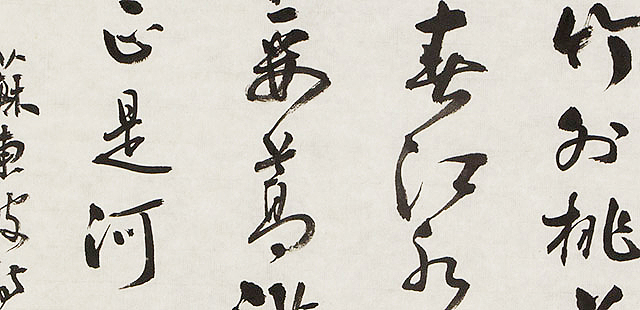 竹外桃
春江水
蔞蒿
正是河
蘇東坡詩